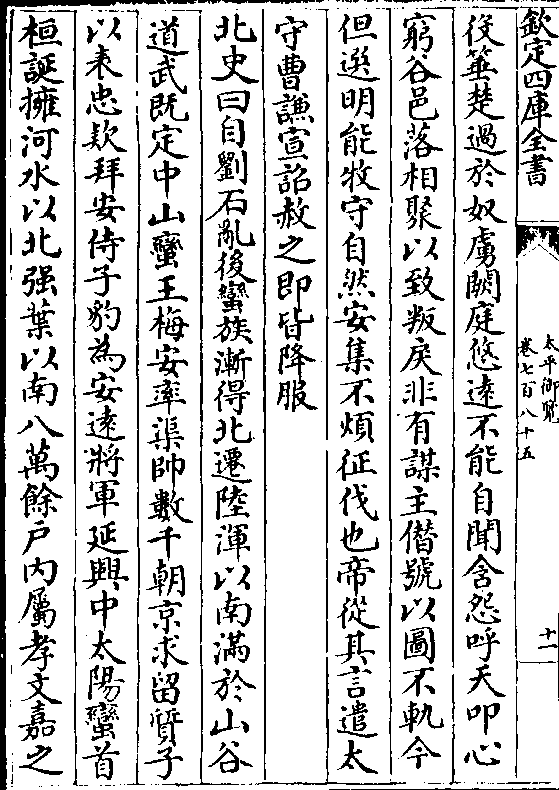 欽定四庫全書
太平御覽
卷七百八十五
十一
役箠楚過於奴虜闕庭悠遠不能自聞含怨呼天叩心
窮谷邑落相聚以致叛戾非有謀主僭號以圖不軌今
但選明能牧守自然安集不煩征伐也帝從其言遣太
守曹謙宣詔赦之即皆降服
北史曰自劉石亂後蠻族漸得北遷陸渾以南滿於山谷
道武既定中山蠻王梅安率渠帥數千朝京求留質子
以表忠款拜安侍子豹為安逺將軍延興中太陽蠻首
桓誕擁河水以北强葉以南八萬餘户内屬孝文嘉之